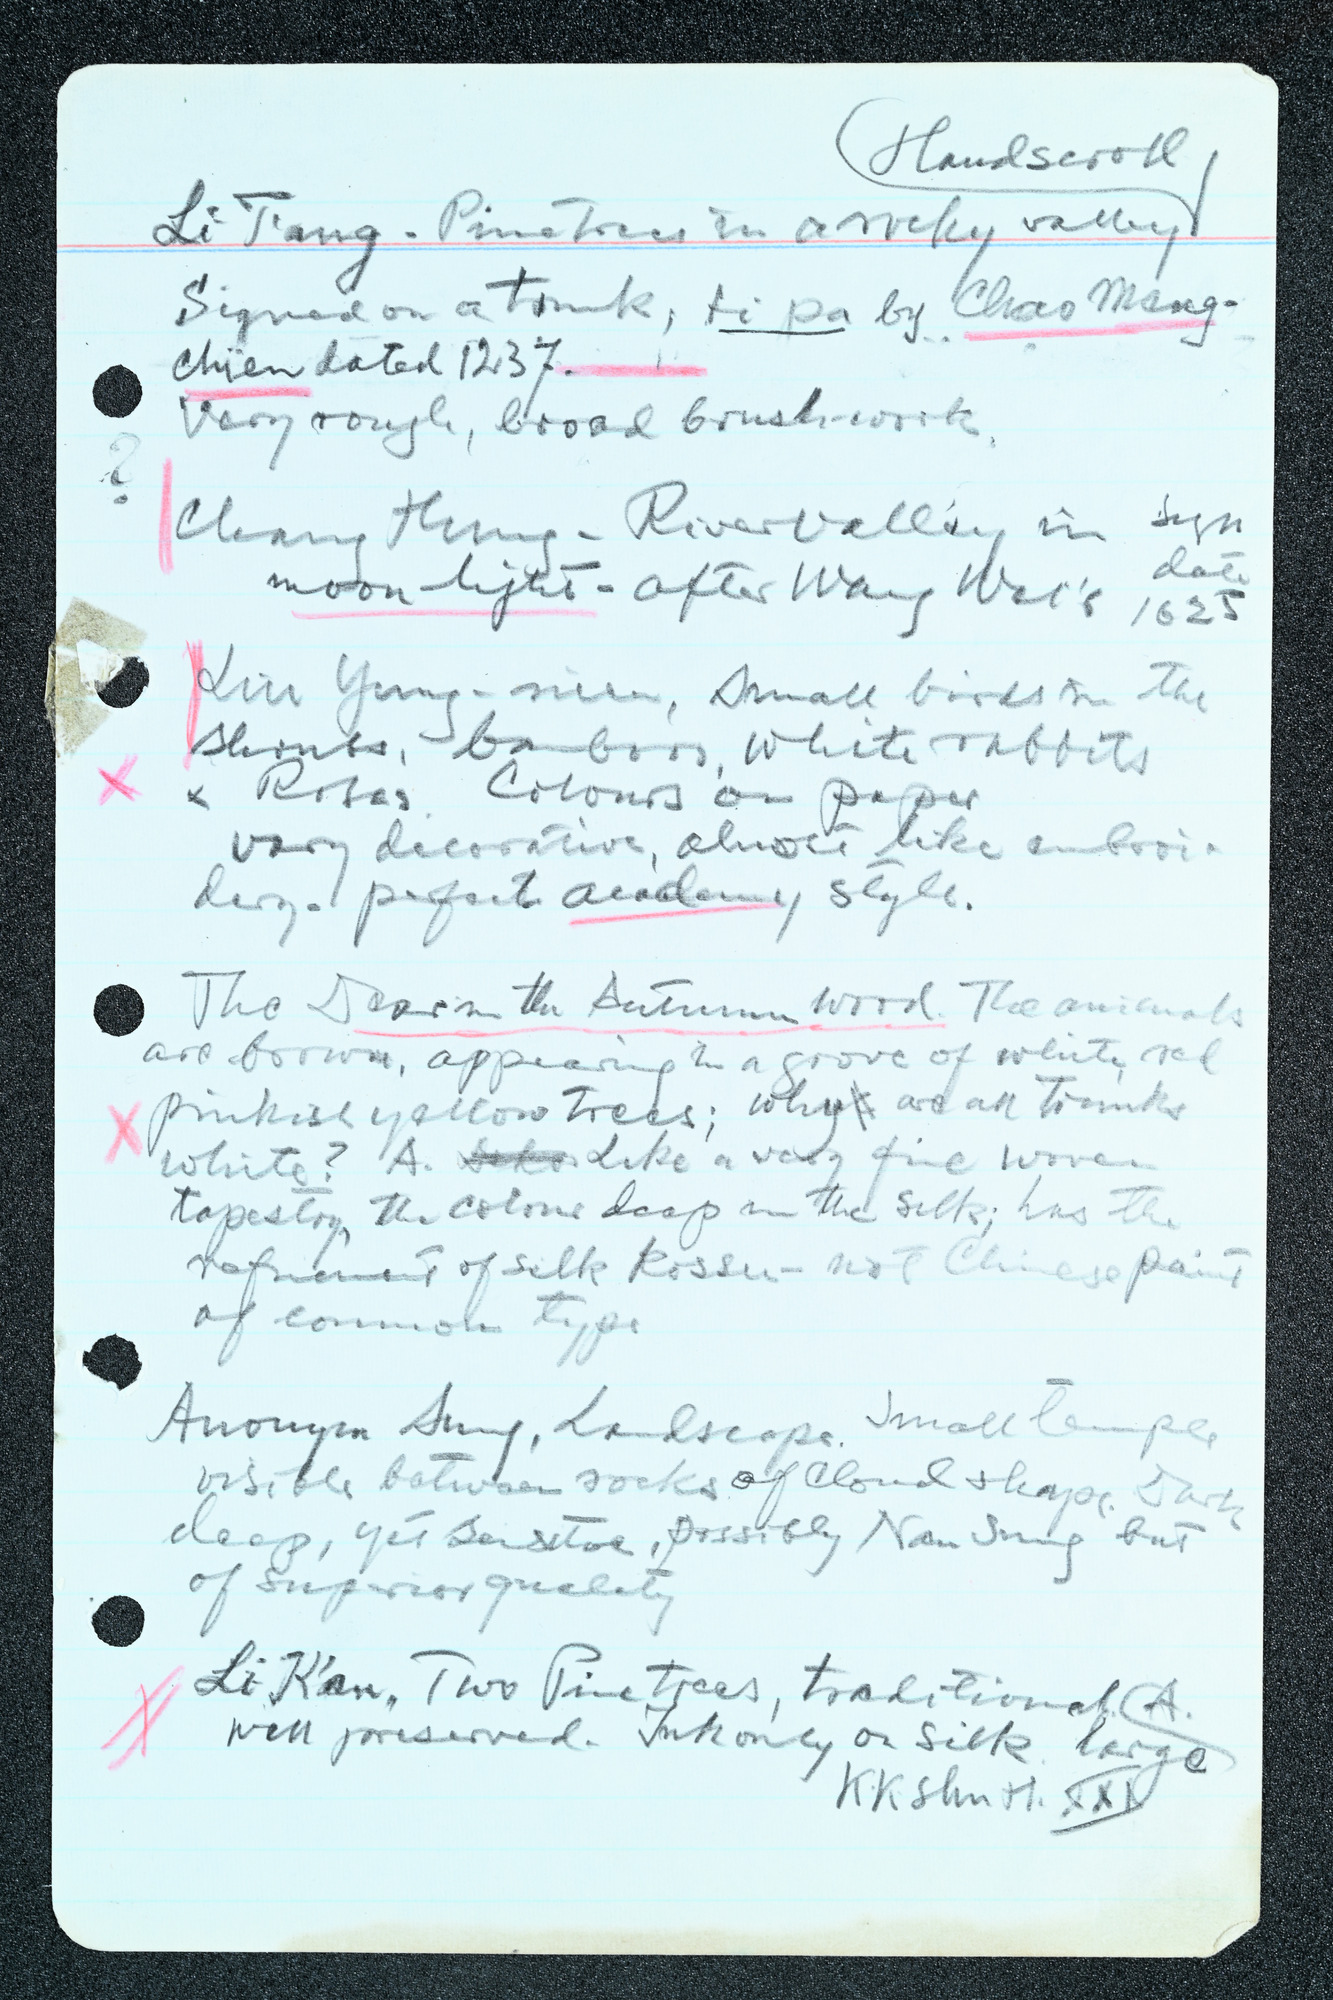 Handscroll
Li T'ang - Pinetrees in a rocky valley
Signed on a trunk, ti pa by Chao Meng-
chien dated 1237.
Very rough, broad brush-work.
?
Chang Hung - River Valley in sign
moon-light - after Wang Wei's date
1625
Liu Yung-nien, Small birds in the
shrubs, bamboos, white rabbits
x Roses Colours on paper
very decorative, almost like embroi-
dery - perfect academy style.
The Deer in the Autumn wood. The animals
are brown, appearing in a grove of white, red
pinkish yellow trees; why are all trunks
white? A. Like a very fine woven
tapestry, the colour deep in the silk; has the
refinement of silk Kossu - not Chinese paint
of common type
Anonym Sung, Landscape. Small temple
visible between rocks of cloud shape. Dark
deep, yet sensitive, possibly Nan Sung but
of superior quality
Li K'an, Two Pinetrees, traditional. A.
well preserved. Ink only on silk. large
K.K. Shu H. XXI